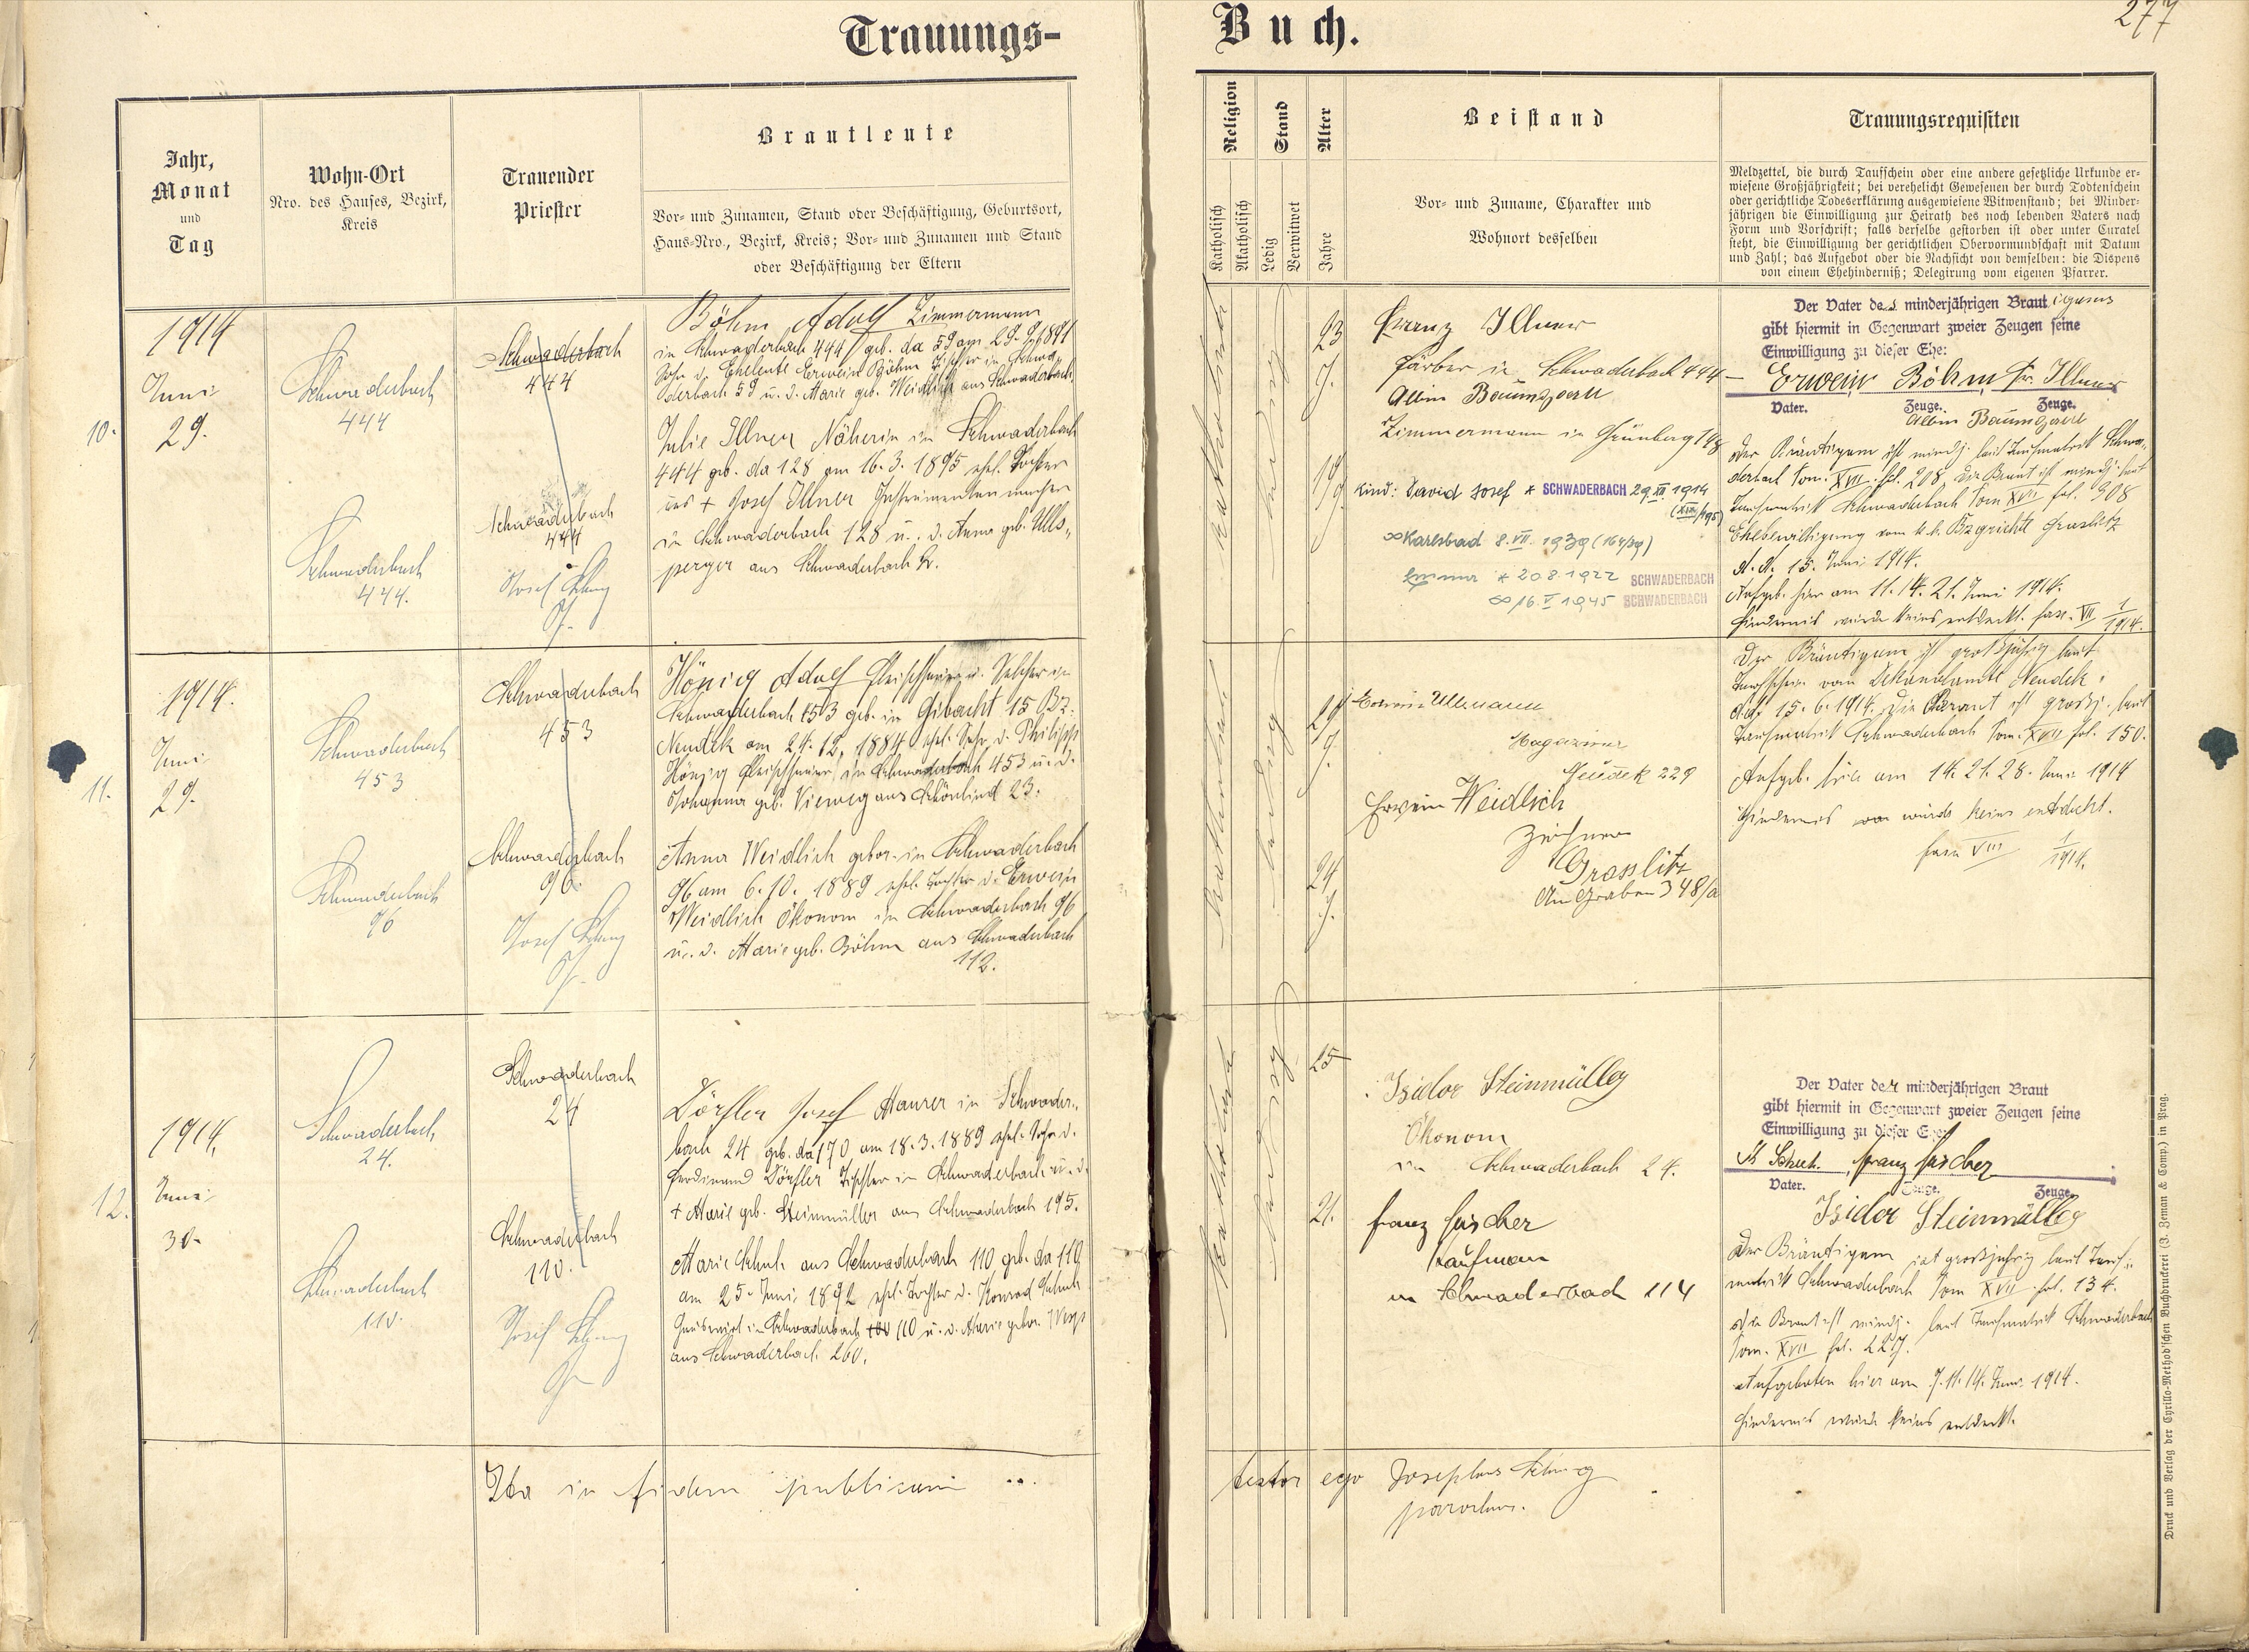 Trauungs-
Buch.
277
Jahr,
Monat
und
Tag
Wohn-Ort
Nro. des Hauses, Bezirk,
Kreis
Trauender
Priester
Brautleute
Vor- und Zunamen, Stand oder Beschäftigung, Geburtsort,
Haus-Nro., Bezirk, Kreis; Vor- und Zunamen und Stand
oder Beschäftigung der Eltern
Religion
Katholisch
Akatholisch
Stand
Ledig
Verwitwet
Alter
Jahre
Beistand
Vor- und Zuname, Charakter und
Wohnort desselben
Trauungsrequisiten
Meldzettel, die durch Taufschein oder eine andere gesetzliche Urkunde er-
wiesene Großjährigkeit; bei verehelicht Gewesenen der durch Todtenschein
oder gerichtliche Todeserklärung ausgewiesene Witwenstand; bei Minder-
jährigen die Einwilligung zur Heirath des noch lebenden Vaters nach
Form und Vorschrift; falls derselbe gestorben ist oder unter Curatel
steht, die Einwilligung der gerichtlichen Obervormundschaft mit Datum
und Zahl; das Aufgebot oder die Nachsicht von demselben: die Dispens
von einem Ehehinderniß; Delegirung vom eigenen Pfarrer.
10.
1914
Juni
29.
Schwaderbach
444
Schwaderbach
444.
Schwaderbach
444
Schwaderbach
444
Josef
Böhm Adolf Zimmermann
in Schwaderbach 444 geb. da 59 am 29.9.1891
Sohn d. Eheleute Erwein Böhm Tischler in Schwa-
derbach 59 u. d. Marie geb. Weidlich aus Schwaderbach
Julie Illner Näherin in Schwaderbach
444 geb. da 128 am 16.3.1895 ehel. Tochter
des + Josef Illner Instrumentenmacher
in Schwaderbach 128 u. d. Anna geb. Ulls-
perger aus Schwaderbach
katholisch
ledig
23
J.
19
J.
Franz Illner
Färber in Schwaderbach 444
Albin Baumgartl
Zimmermann in Grünberg 148
Kind: David Josef * SCHWADERBACH 29.XII.1914
∞ Karlsbad 8.VII.1939 (164/39)
Emma * 20.8.1922 SCHWADERBACH
∞ 16.V.1945 SCHWADERBACH
Der Vater des minderjährigen Bräutigams
gibt hiermit in Gegenwart zweier Zeugen seine
Einwilligung zu dieser Ehe:
Erwein Böhm Fr. Illner
Vater. Zeuge. Zeuge.
Albin Baumgartl
Der Bräutigam ist mindj. laut Taufmatrik Schwa-
derbach Tom. XVII. fol. 208, die Braut ist mindj. laut
Taufmatrik Schwaderbach Tom XVII fol. 308
Ehebewilligung vom k.k. Bzgericht Graslitz
d.d. 15. Juni 1914.
Aufgeb. hier am 11. 14. 21. Juni 1914.
Hindernis wurde keines entdeckt. fasc. VII 1/1914.
11.
1914.
Juni
29.
Schwaderbach
453
Schwaderbach
96
Schwaderbach
453
Schwaderbach
96.
Josef
Hönig Adolf Fleischhauer u. Selcher in
Schwaderbach 453 geb. in Gibacht 15 Bz.
Neudek am 24.12.1884 ehel. Sohn d. Philipp
Hönig Fleischhauer in Schwaderbach 453 u. d.
Johanna geb. Vieweg aus Schönlind 23.
Anna Weidlich gebor. in Schwaderbach
96 am 6.10.1889 ehel. Tochter d. Erwein
Weidlich Ökonom in Schwaderbach 96
u. d. Marie geb. Böhm aus Schwaderbach
112.
katholisch
ledig
29
J.
24
J.
Erwein Ullmann
Magazineur
Neudek 229
Erwein Weidlich
Zeichner
Grasslitz
Am Graben 348/a
Der Bräutigam ist großjährig laut
Taufschein vom Dekanalamte Neudek
d.d. 15.6.1914. Die Braut ist großj. laut
Taufmatrik Schwaderbach Tom. XVII fol. 150.
Aufgeb. hier am 14. 21. 28. Juni 1914
Hindernis wurde keines entdeckt.
fasc VIII 1/1914.
12.
1914.
Juni
30.
Schwaderbach
24.
Schwaderbach
110.
Schwaderbach
24
Schwaderbach
110.
Josef
Dörfler Josef Maurer in Schwader-
bach 24 geb. da 170 am 18.3.1889 ehel. Sohn d.
Ferdinand Dörfler Tischler in Schwaderbach u. d.
+ Marie geb. Steinmüller aus Schwaderbach 195.
Marie Schuh aus Schwaderbach 110 geb. da 110
am 25. Juni 1892 ehel. Tochter d. Konrad Schuh
Gastwirt in Schwaderbach 110 u. d. Marie gebor.
aus Schwaderbach 260.
katholisch
ledig
25
21.
Isidor Steinmüller
Ökonom
in Schwaderbach 24.
Franz Fischer
Kaufmann
in Schwaderbach 114
Der Vater der minderjährigen Braut
gibt hiermit in Gegenwart zweier Zeugen seine
Einwilligung zu dieser Ehe:
K Schuh. Franz Fischer
Vater. Zeuge. Zeuge.
Isidor Steinmüller
Der Bräutigam ist großjährig laut Tauf-
matrik Schwaderbach Tom XVII fol. 134.
Die Braut ist mindj. laut Taufmatrik Schwaderbach
Tom. XVII fol. 227.
Aufgeboten hier am 7. 11. 14. Juni 1914.
Hindernis wurde keines entdeckt.
Ita in fidem publicam testor ego Josephus
parochus.
Druck und Verlag der Cyrillo-Method'schen Buchdruckerei (J. Zeman & Comp.) in Prag.